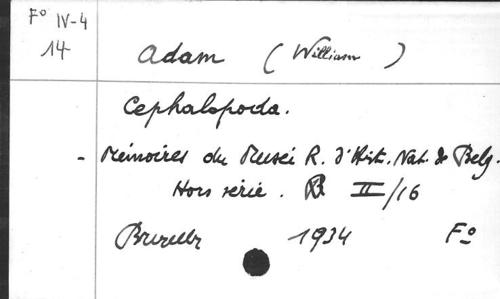 Fo IV-4
14
Adam (William)
Cephalopoda.
- Mémoires du Musée R. d'Hist. Nat. de Belg.
Hors série. II/16
Bruxelles 1934 Fo